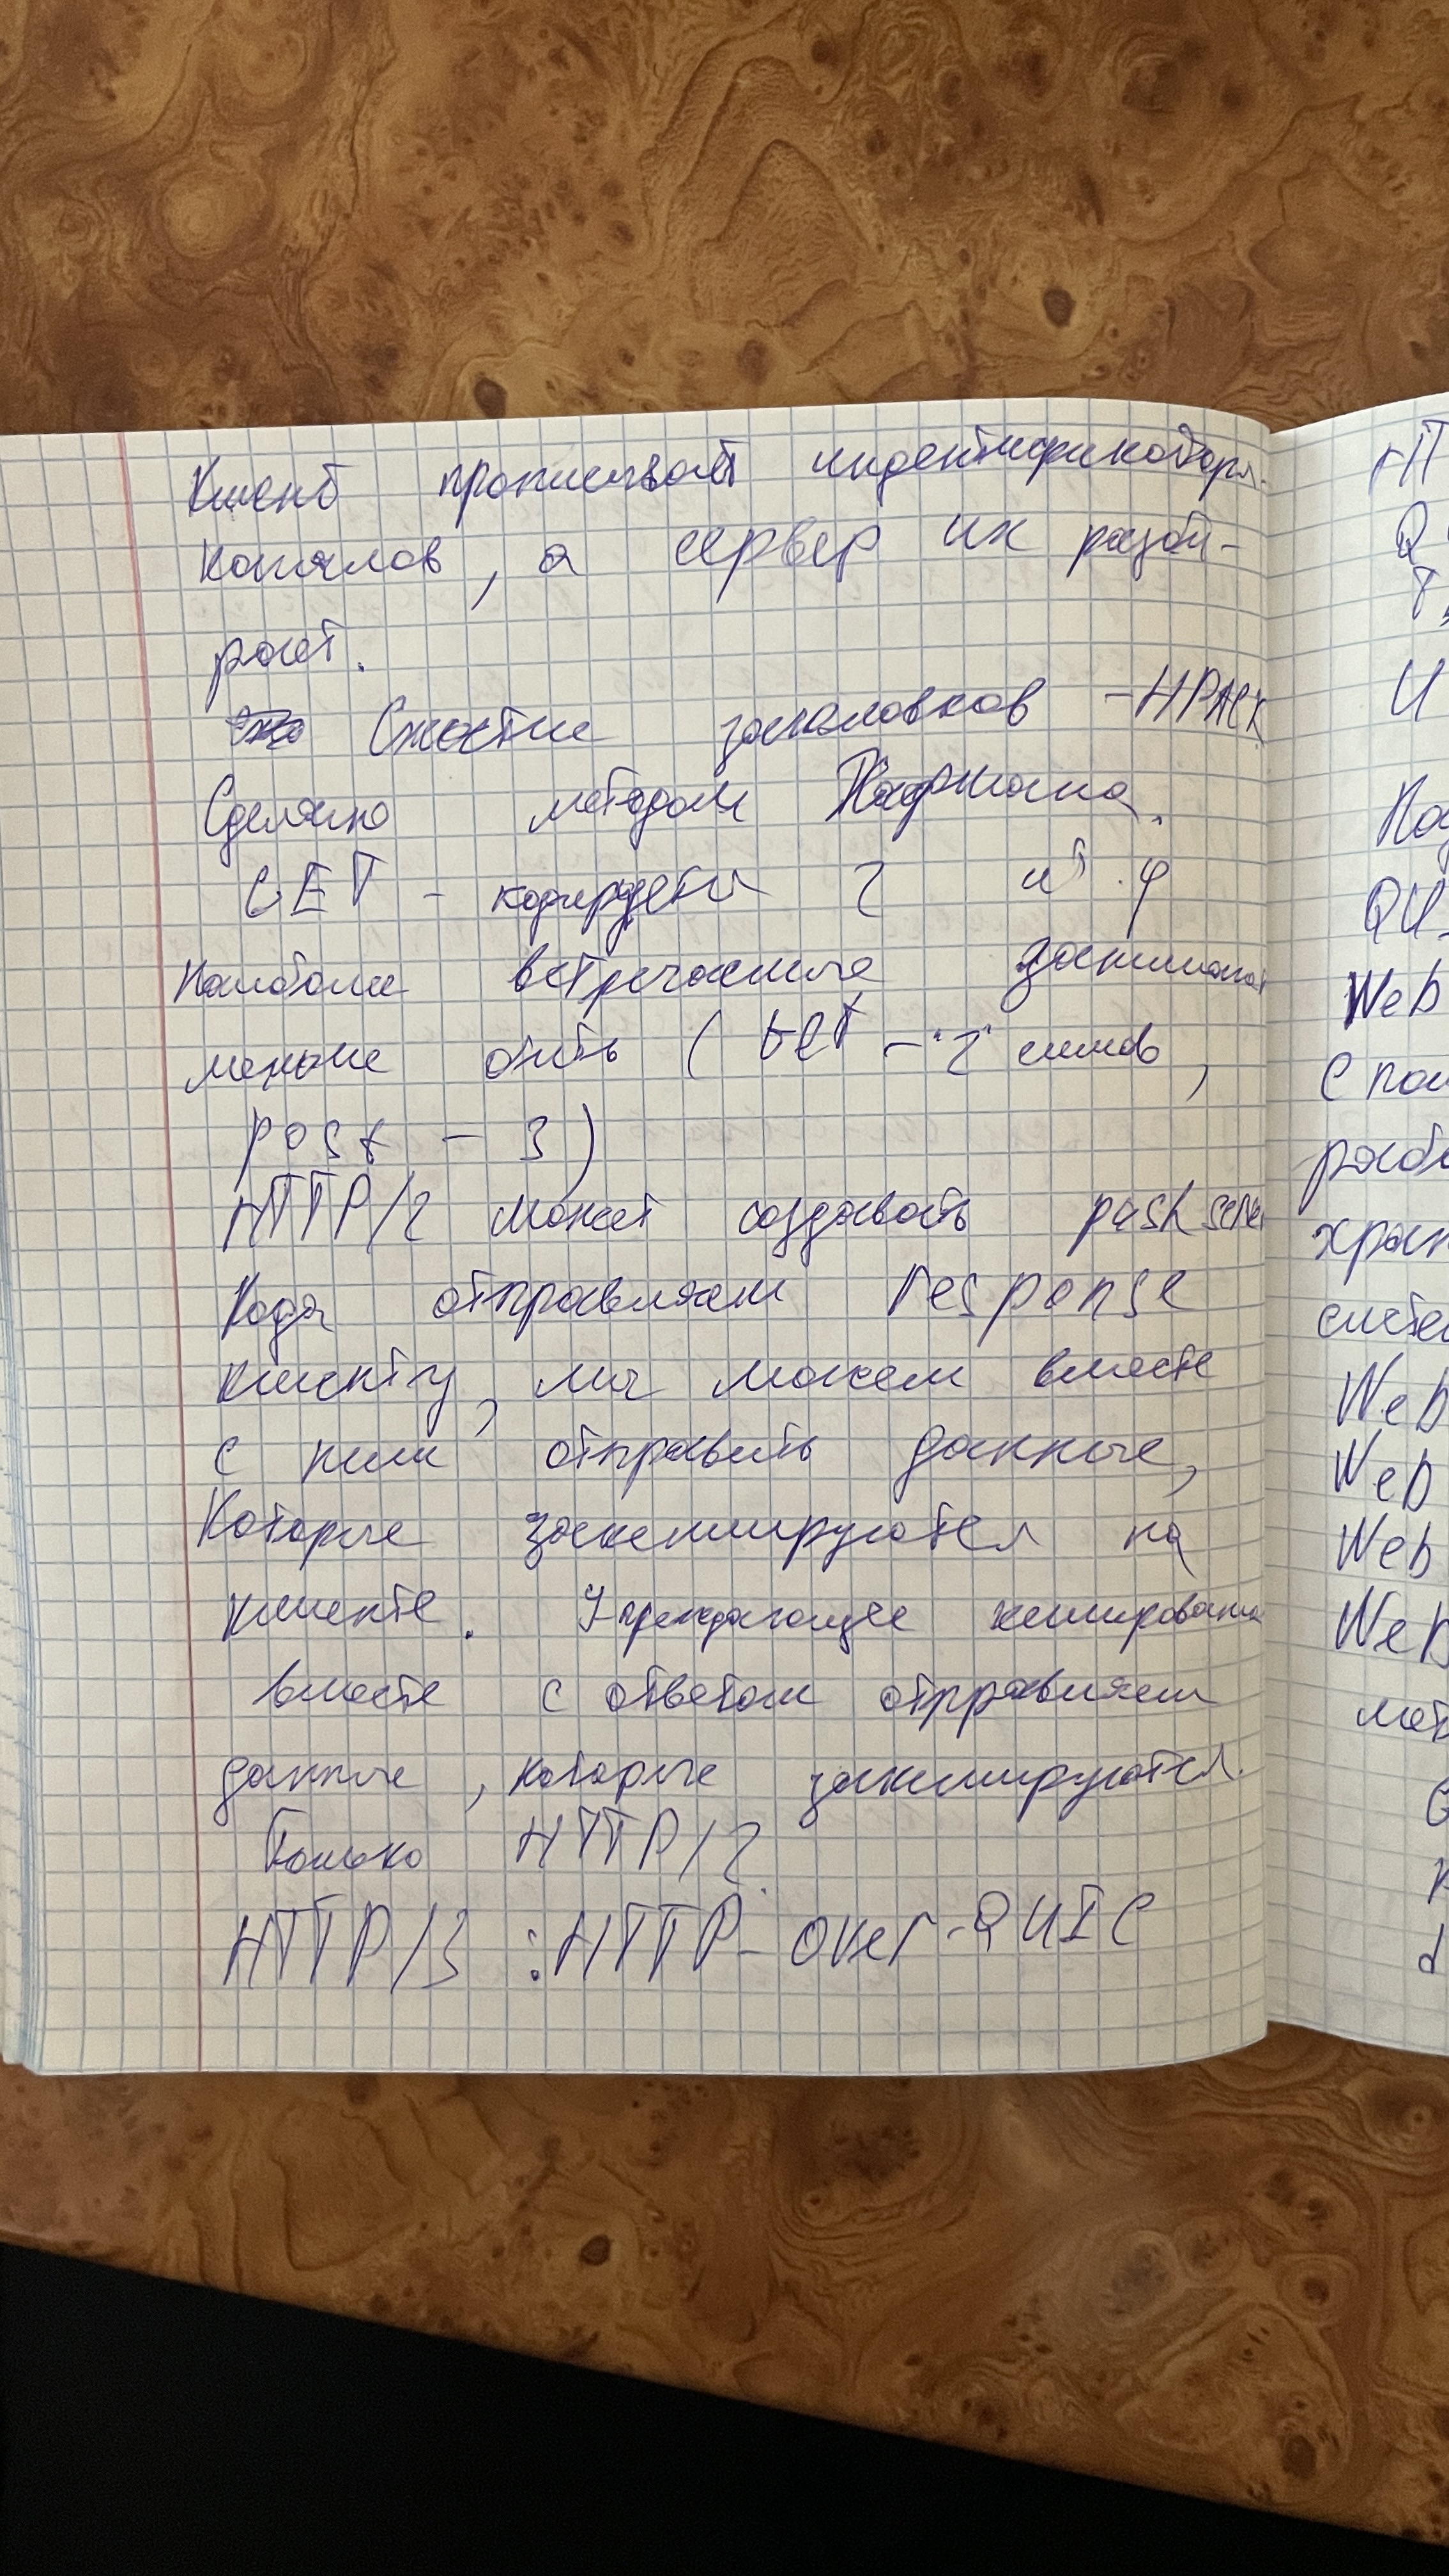 Клиент прописывает индентификаторы
каналов, а сервер их разби-
рает.
Сжатие заголовков - HPACK
Сделано методом Хафмана.
GET - кодируется 2
Наиболее встречаемые занимают
меньше бит (GET - "2" симв,
post - 3)
HTTP/2 может создавать push server
Когда отправляем response
клиенту, мы можем вместе
с ним отправить данные,
которые закешируются на
клиенте. Упреждающее кеширование
вместе с ответом отправляем
данные, которые закешируются.
Только HTTP/2.
HTTP/3 : HTTP-over-QUIC
Q
И
QU
Web
С пом
храни
систе
Web
Web
Web
Web
мет